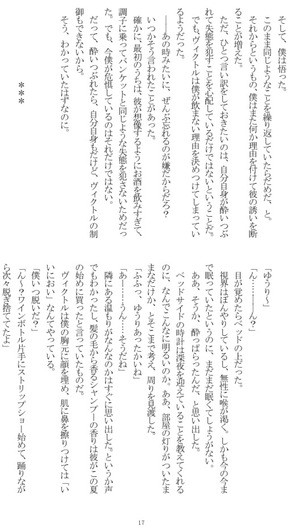 そして、僕は悟った。
このまま同じようなことを繰り返していたらだめだ、と。
それからというもの、僕はまた何か理由を付けて彼の誘いを断
ることが増えた。
ただ、ひとつ言い訳をしておきたいのは、自分自身が酔いつぶ
れて失態を犯すことを心配しているだけではないということだ。
でも、ヴィクトルは僕が飲まない理由を決めつけてしまってい
るようだった。
――あの時みたいに、ぜんぶ忘れるのが嫌だからだろ？
いつかそう言われたことがあった。
確かに、最初のうちは、彼が想像するようにお酒を飲みすぎて、
調子に乗ってバンケットと同じような失態を犯さないためだっ
た。でも、今僕が危惧しているのはそれだけではない。
だって、酔いつぶれたら、自分自身もだけど、ヴィクトルの制
御もできないから。
そう、わかっていたはずなのに。
***
「ゆうり～」
「ん……ーん？」
目が覚めたらベッドの上だった。
視界はぼんやりしているし、無性に喉が渇く。しかも今の今ま
で眠っていたというのに、まだまだ眠くてしょうがない。
ああ、そうか、酔っぱらったんだ、と思い出した。
ベッドサイドの時計は深夜を迎えていることを教えてくれる
のに、なんでこんなに明るいのか、ああ、部屋の灯りがついたま
まなだけか、とそこまで考え、周りを見渡した。
「ふふっ、ゆうりあったかいね」
「あ……うん……そうだね」
隣にある温もりがなんなのかはすぐに思い出した。というか声
でもわかったし、髪の毛から香るシャンプーの香りは彼がこの夏
の始めに買ったと言っていたものだ。
ヴィクトルは僕の胸元に顔を埋め、肌に鼻を擦りつけては「い
いにおい」なんてやっている。
「僕いつ脱いだ？」
「ん～？ワインボトル片手にストリップショー始めて、踊りなが
ら次々脱ぎ捨ててたよ」
17